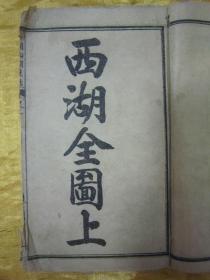 西湖全圖上